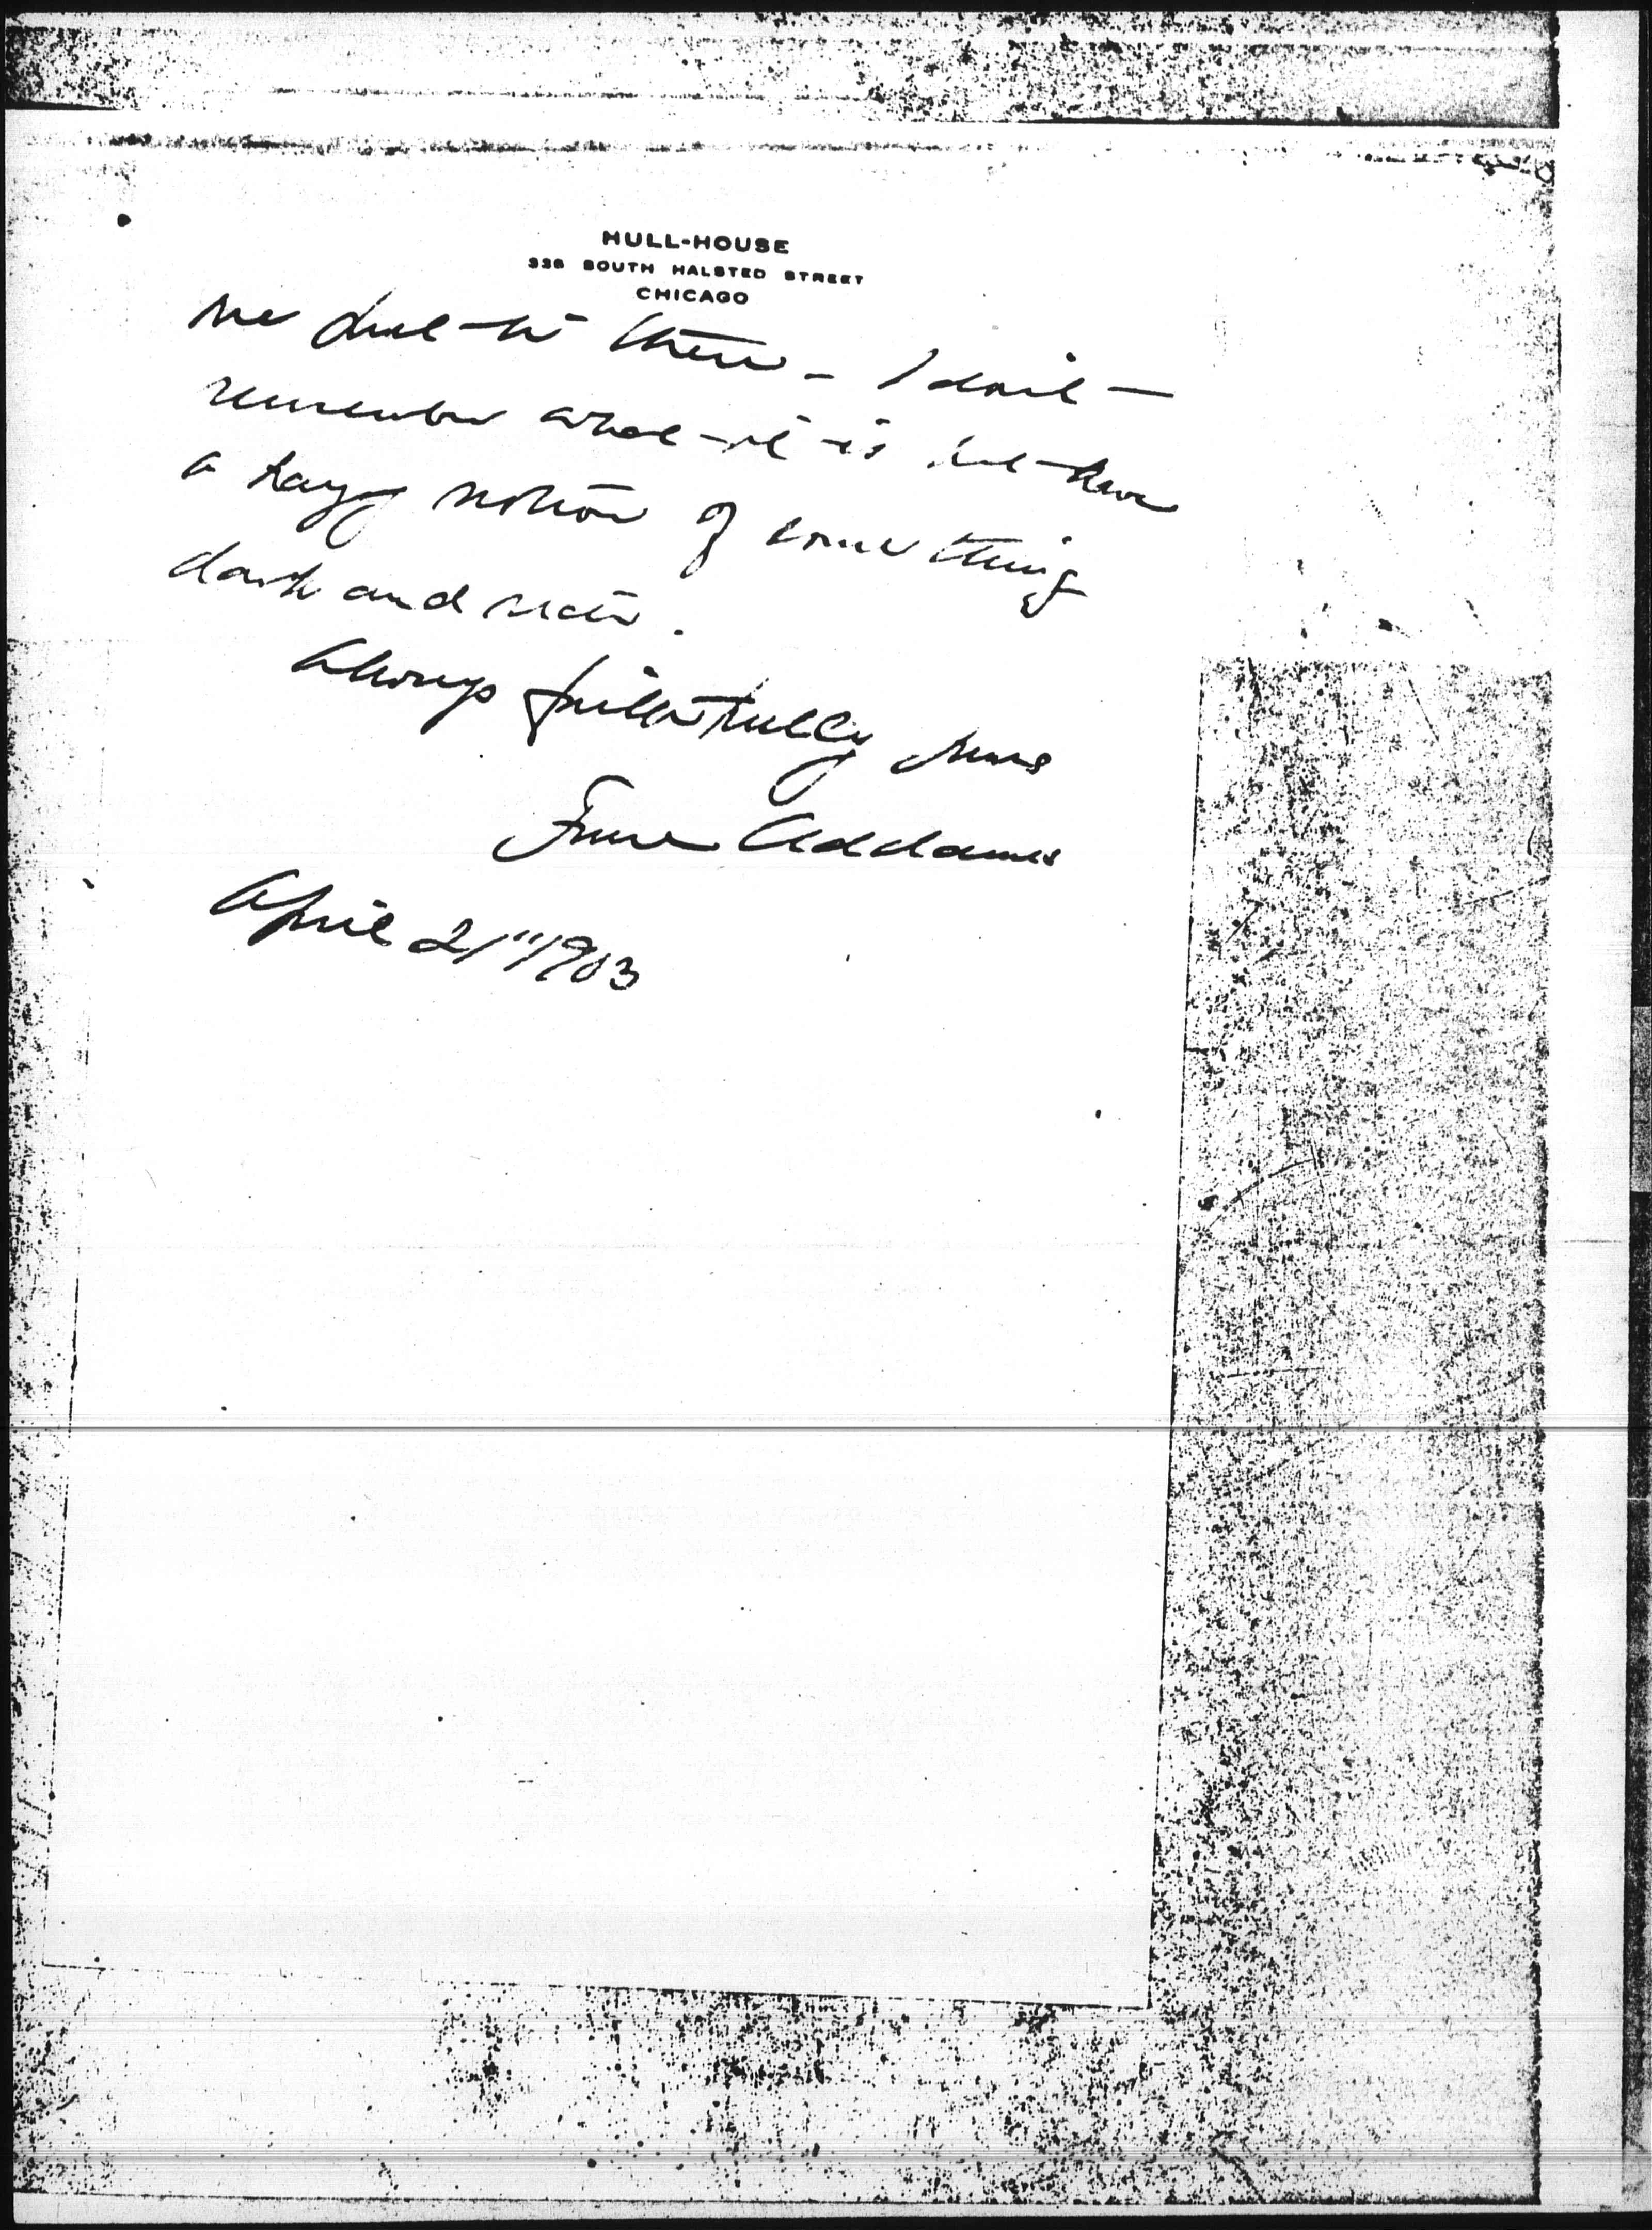 HULL-HOUSE
335 SOUTH HALSTED STREET
CHICAGO
me but to them – I don't
remember what it is but have
a hazy notion of something
dark and
Always faithfully yours
Jane Addams
April 21" 1903